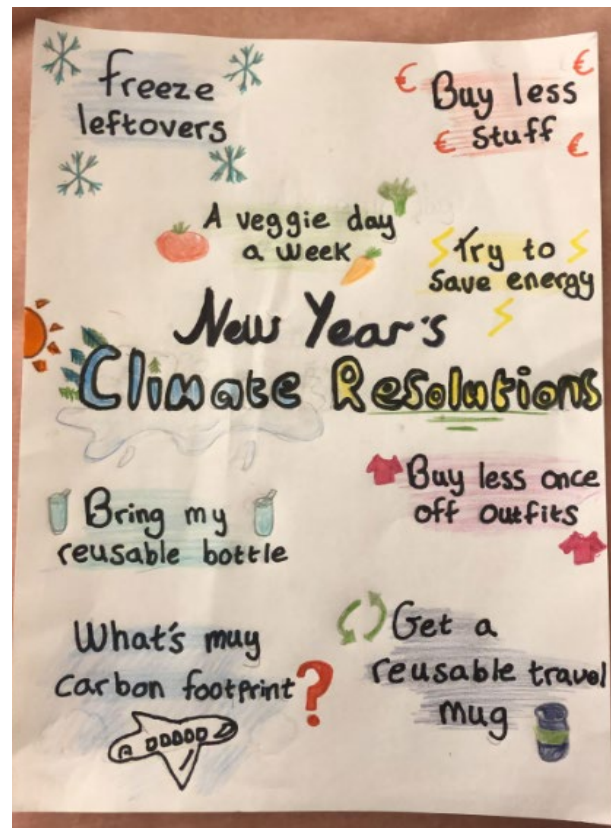 Freeze
leftovers
€
€
Buy less
€ Stuff €
A veggie day
a week
Try to
Save energy
New Year's
Climate Resolutions
Buy less once
off outfits
Bring my
reusable bottle
What's muy
carbon footprint?
Get a
reusable travel
mug